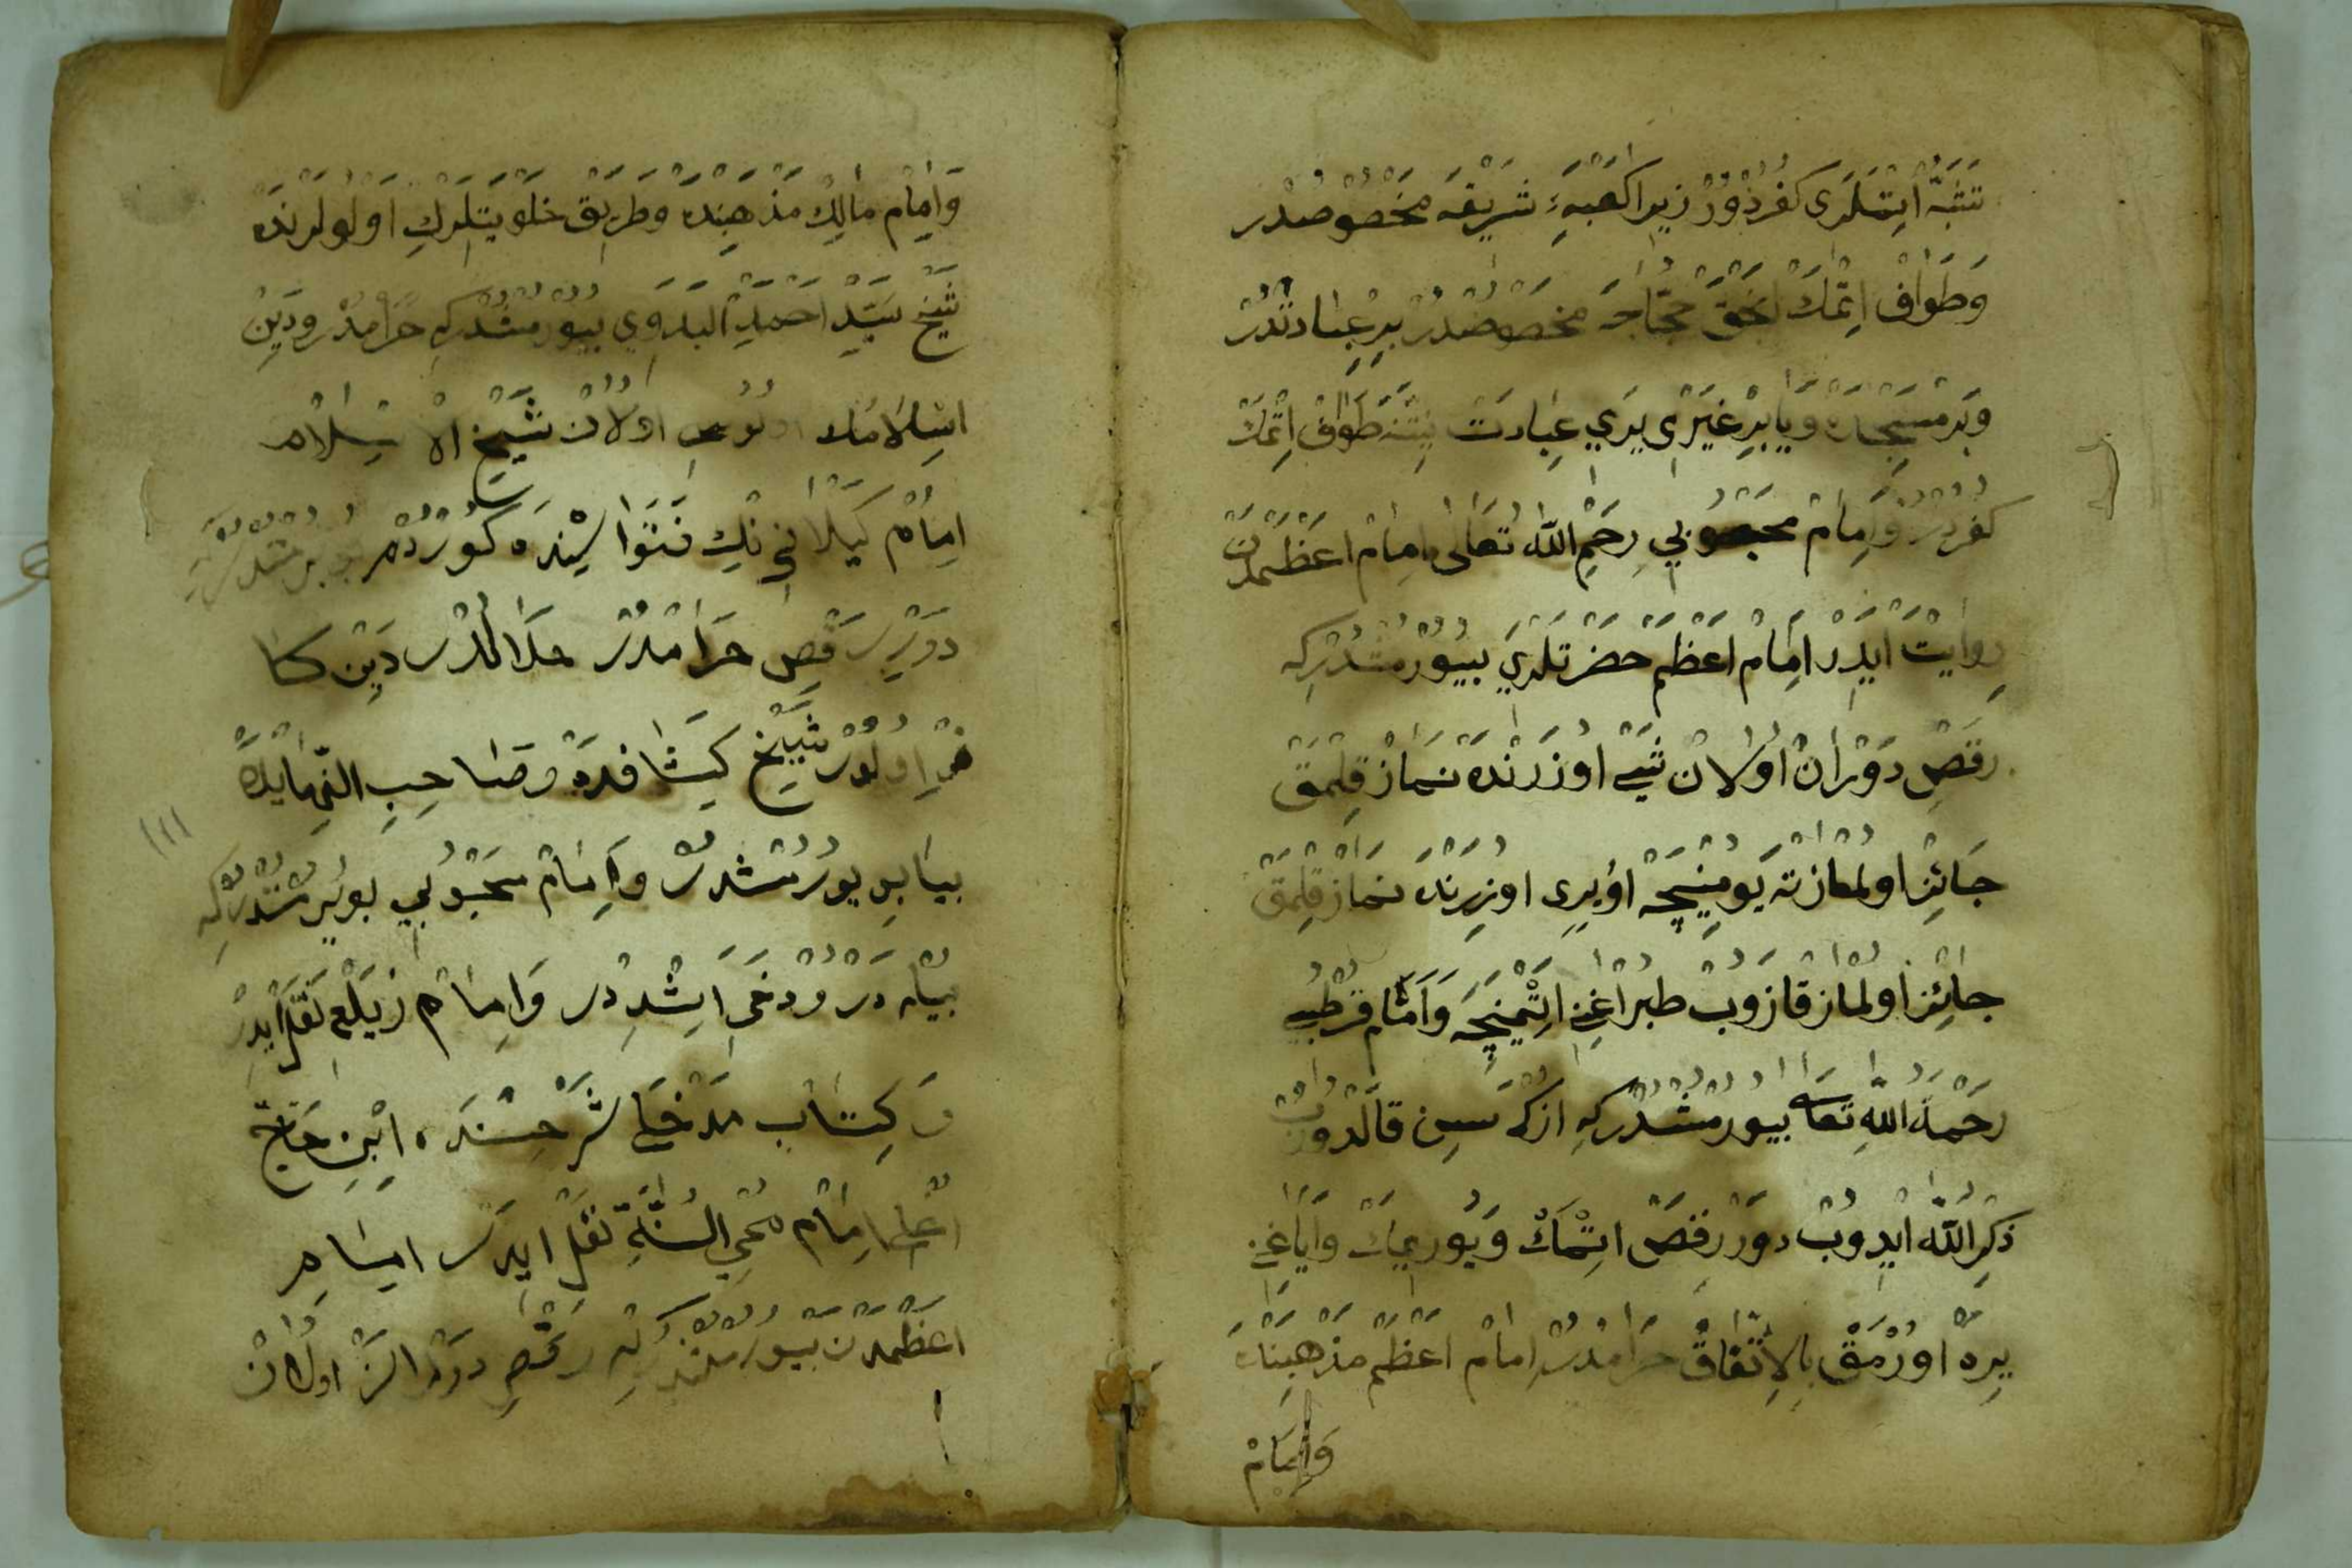 تشبّه ایتملری کفردور زیرا کعبهٔ شریفه مخصوصدر
وَطَوَافْ اِتْمَكْ انجق حجّاجه مخصوصدر بر عبادتدر
وبر مسجده وَیا بر غیری یری عبادت نیّتنه طواف اتمك
کفردر وَامام محبوبی رحم الله تعالی امام اعظمدن
روایت ایدر امام اعظم حضرتلری بیورمشدرکه
رقص دوران اولان شیئ اوزرنده نماز قلمق
جائز اولماز ته یومینجه اول یری اوزرنده نماز قلمق
جائز اولماز قازوب طبراغنی اتمینجه وَامام قرطبی
رحمة الله تعالی بیورمشدرکه ازکه سسن قالدروب
ذکر الله ایدوب دور رقص اتمك وَیوریمك وایاغنی
یره اورمق بالاتّفاق حرامدر امام اعظم مذهبنده
وامام
وَامام مالك مذهبنده وطریق خلوتیلرك اولولرنده
شیخ سیّد احمد البدوی بیورمشدرکه حرامدر ودین
اسلامك اولان شیخ الاسلام
امام کیلانی نك فتواسنده کوردم
دور رقص حرامدر حلالدر دین کا
فر اولور شیخ کشافده وصاحب النهایده
بیورمشدر وَامام محبوبی بویورمشدرکه
بیله در ودخی اشددر وَامام زیلعی نقل ایدر
وَکتاب مدخل شرحنده ابن حاج
امام محی السنّة نقل ایدر امام
اعظمدن بیورمشدرکه رقص دوران اولان